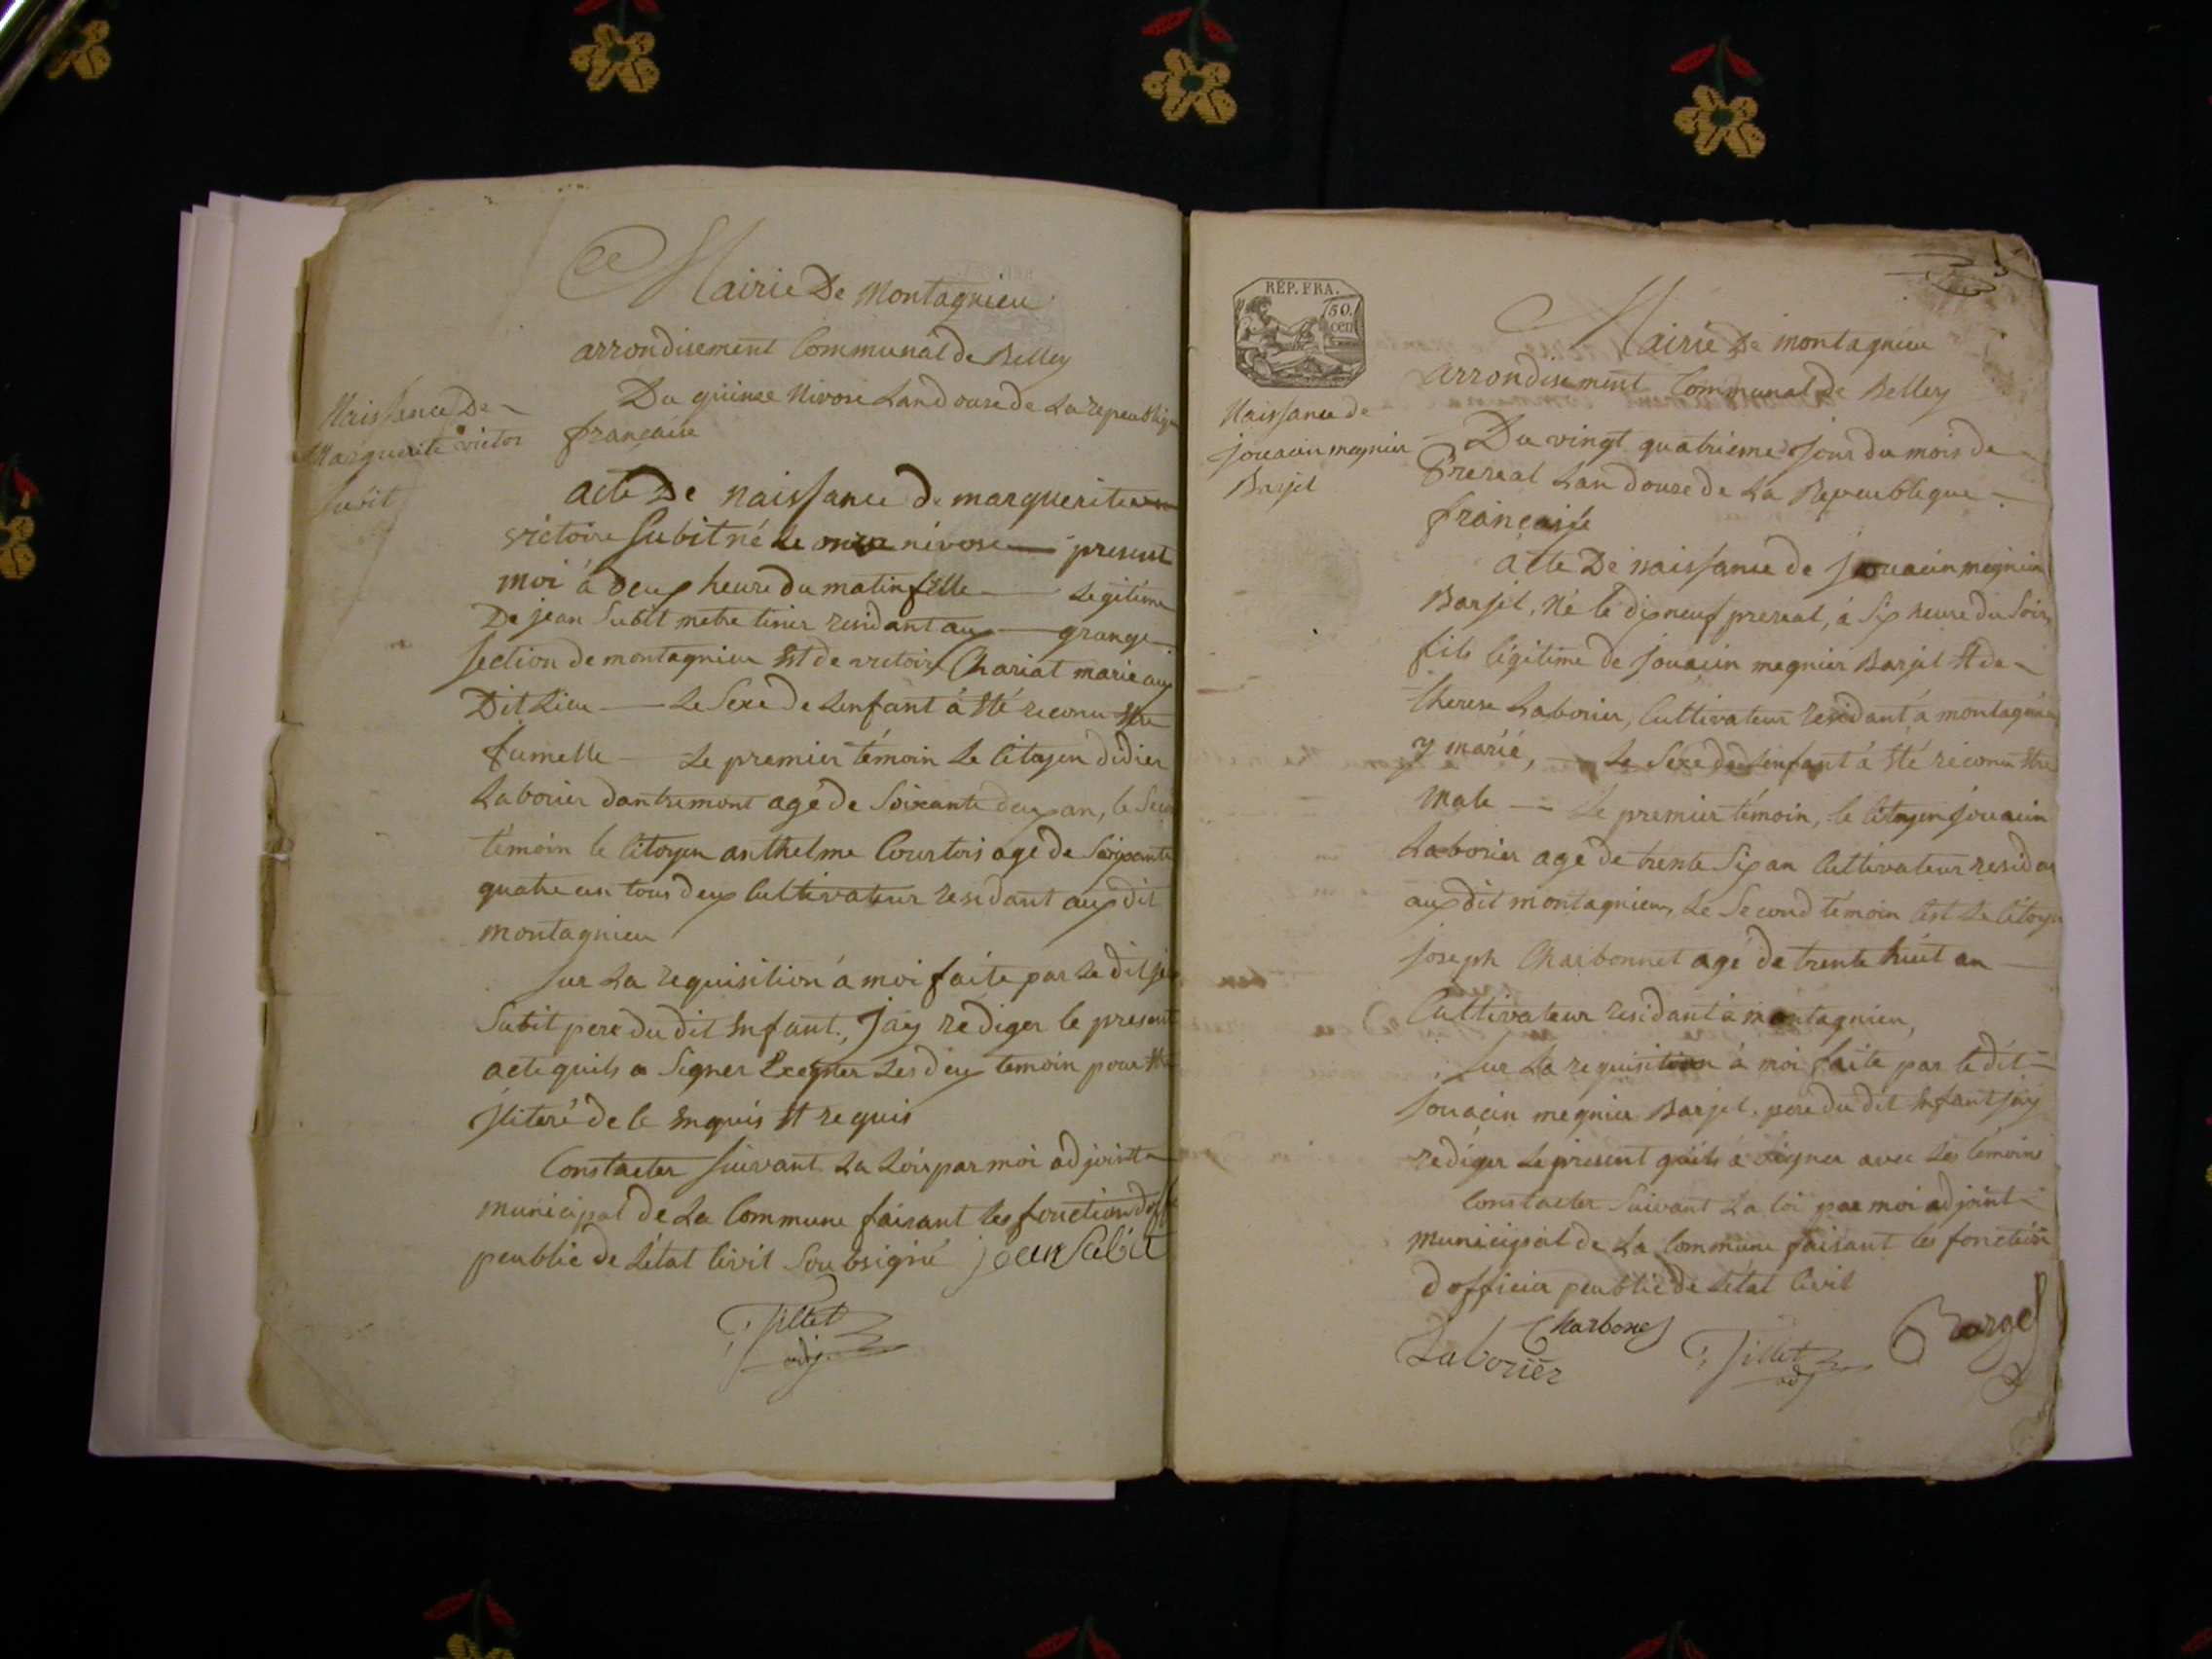 Mairie De Montagnieu
arrondisement Communal de Belley
Du quinse Nivose Lan douse de La repeublique
française
Naissance De
Marguerite victor
Subit
acte De naissance de marguerite
victoire Subit né Le nivose present
moi à deux heure du matin fille Legitime
De jean Subit metre tinier residant aux grange
section de montagnieu Et de victoire Chariat marié aux
Dit Lieu Le Sexe de Lenfant à Eté reconu Etre
fumelle Le premier témoin Le Citoyen didier
Laborier dantremont agé de Soixante deux an, le Second
témoin le Citoyen anthelme Courtois age de Soixante
quatre an tous deux Cultivateur residant aux dit
montagnieu
Sur La requisition à moi faite par Le dit
Subit pere du dit Enfant, Jay rediger le present
acte quils a Signer Excepter Les deux temoin pour Etre
jliteré de ce Enquis Et requis
Constacter Suivant La Loix par moi adjoint
municipal de La Commune faisant les fonction
peublic de Létat Civil Soubsigné jean Subit
Tillet
adj.
RÉP. FRA.
50.
cen
Mairie De montagnieu
arrondisement Communal de Belley
Naissance de
jouacin megnier
Barjel
Du vingt quatrieme Jour du mois de
Prereal Lan douse de La Repeublique
française
acte De naissance de jouacin megnier
Barjel, Né le dix neuf prereal, à Six heure du Soir,
fils légitime de jouacin megnier Barjel Et de
therese Laborier, Cultivateur residant à montagnieu
y marié, Le Sexe de Lenfant à Eté reconu Etre
male Le premier témoin, le Citoyen jouacin
Laborier agé de trente Six an Cultivateur residant
aux dit montagnieu, Le Second témoin Cest Le Citoyen
joseph Charbonnet agé de trente huit an
Cultivateur residant à montagnieu,
Sur La requisition à moi faite par le dit
jouacin megnier Barjel, pere du dit Enfant jay
rediger Le present quils à Signer avec Les témoins
Constacter Suivant La loi par moi adjoint
municipal de La Commune faisant les fonction
dofficier peublic de Létat Civil
Charbonet
Laborier Tillet Bargel
adj